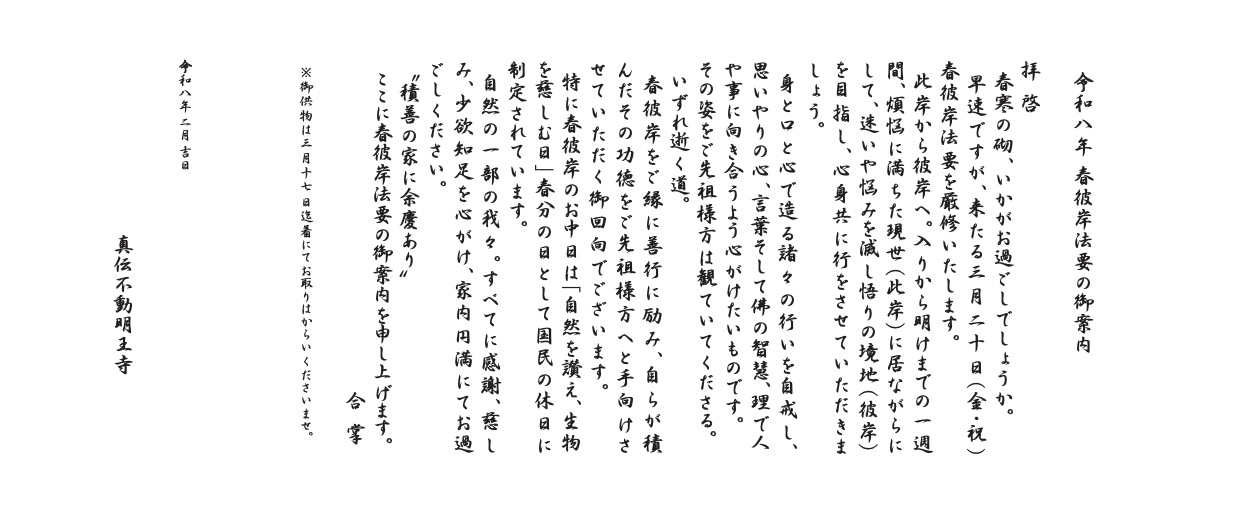 令和八年 春彼岸法要の御案内
拝啓
春寒の砌、いかがお過ごしでしょうか。
早速ですが、来たる三月二十日(金・祝)
春彼岸法要を厳修いたします。
此岸から彼岸へ。入りから明けまでの一週
間、煩悩に満ちた現世(此岸)に居ながらに
して、迷いや悩みを滅し悟りの境地(彼岸)
を目指し、心身共に行をさせていただきま
しょう。
身と口と心で造る諸々の行いを自戒し、
思いやりの心、言葉そして佛の智慧、理で人
や事に向き合うよう心がけたいものです。
その姿をご先祖様方は観ていてくださる。
いずれ逝く道。
春彼岸をご縁に善行に励み、自らが積
んだその功徳をご先祖様方へと手向けさ
せていただく御回向でございます。
特に春彼岸のお中日は「自然を讃え、生物
を慈しむ日」春分の日として国民の休日に
制定されています。
自然の一部の我々。すべてに感謝、慈し
み、少欲知足を心がけ、家内円満にてお過
ごしください。
〝積善の家に余慶あり〟
ここに春彼岸法要の御案内を申し上げます。
合掌
※御供物は三月十七日迄着にてお取りはからいくださいませ。
令和八年二月吉日
真伝不動明王寺